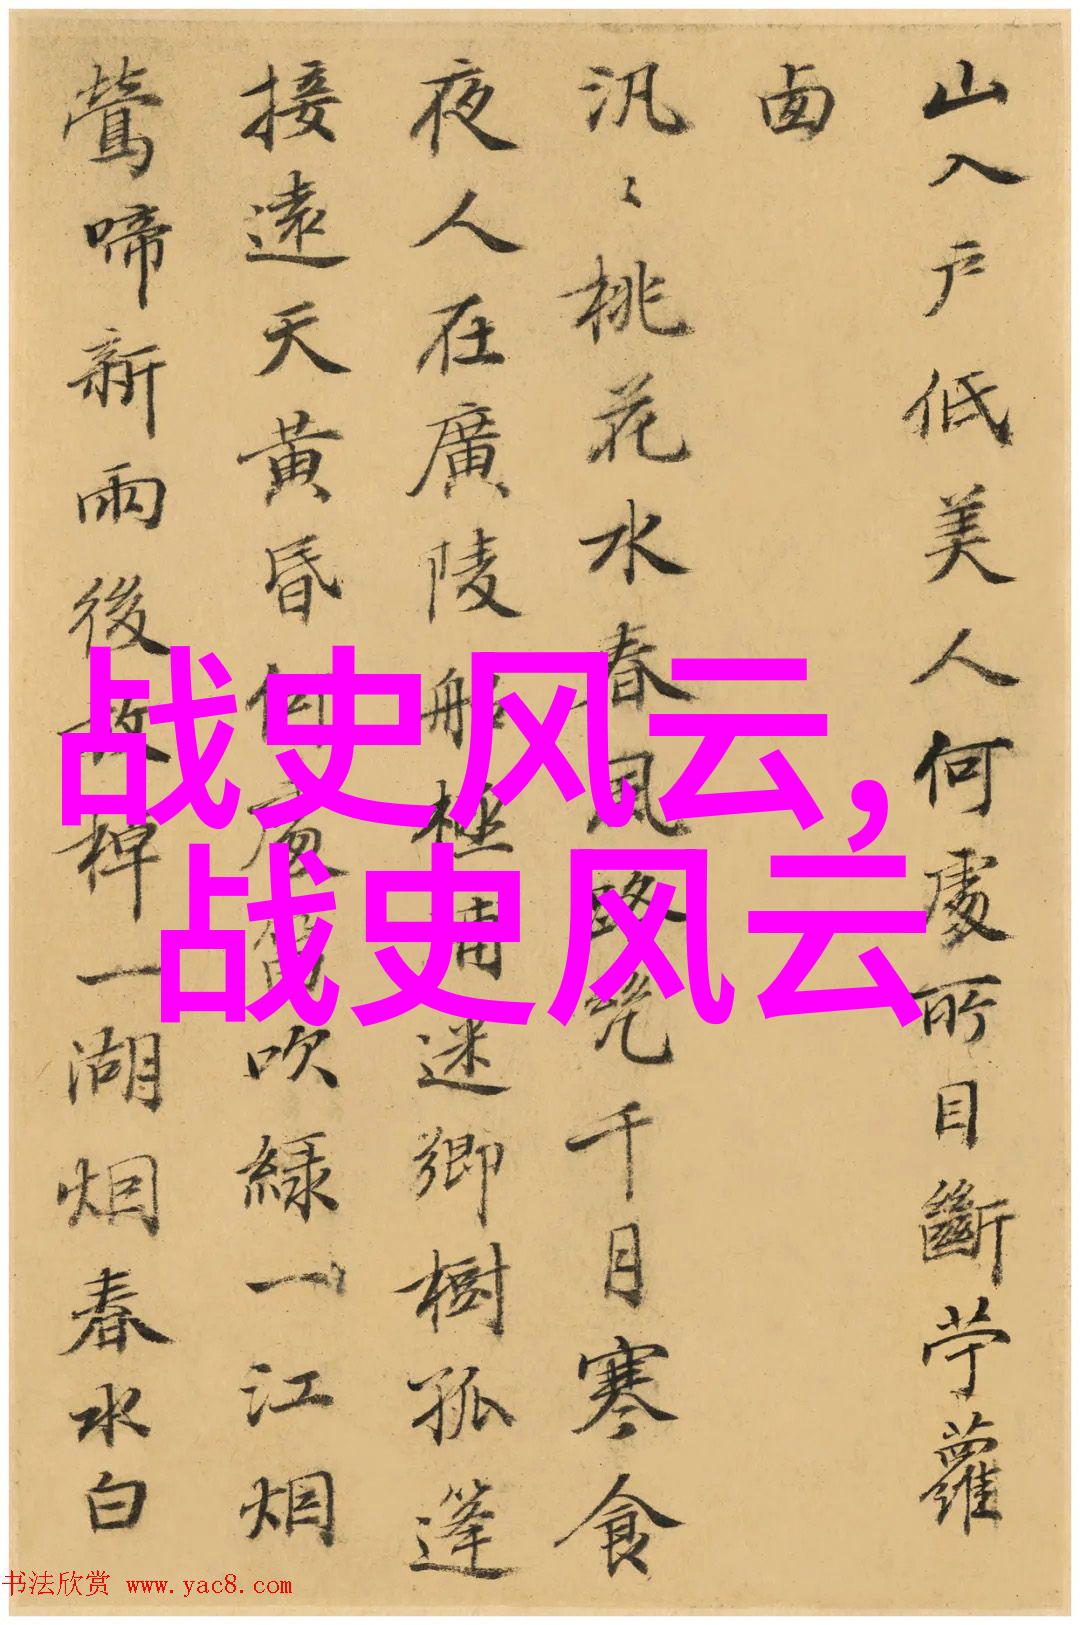 山入戶低美人何處所目斷苧蘿
汎〻桃花水春風路絶千月寒食
夜人在廣陵船極浦迷鄉樹孤篷
接遠天黃昏何吹綠一江烟
鶯啼新雨後放棹一湖烟春水白
战史风云,
战史风云
书法欣赏 www.yac8.com